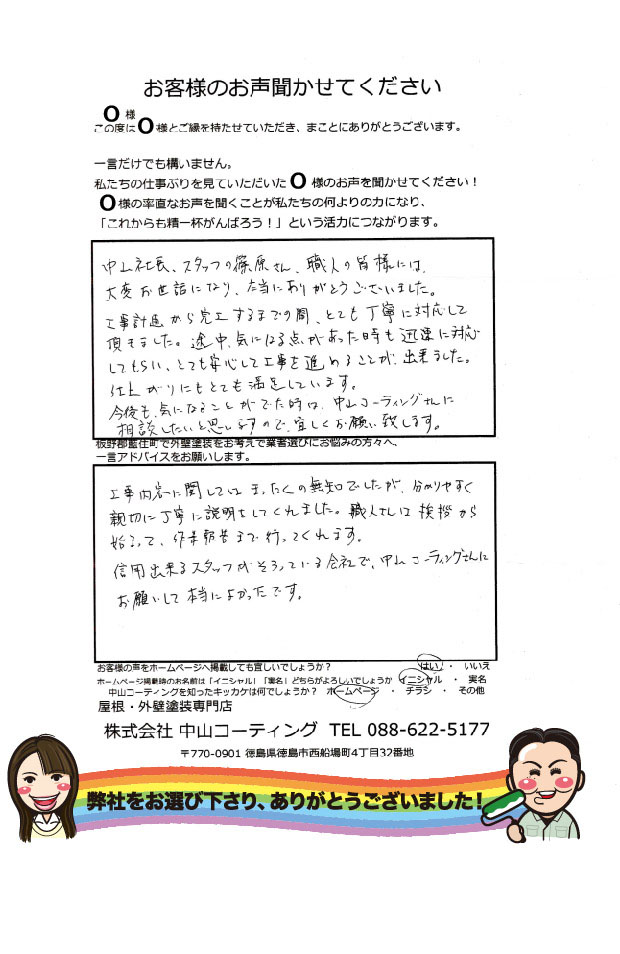 お客様のお声聞かせてください
O 様
この度は O 様とご縁を持たせていただき、まことにありがとうございます。
一言だけでも構いません。
私たちの仕事ぶりを見ていただいた O 様のお声を聞かせてください!
O 様の率直なお声を聞くことが私たちの何よりの力になり、
「これからも精一杯がんばろう!」という活力につながります。
中山社長、スタッフの篠原さん、職人の皆様には、
大変お世話になり、本当にありがとうございました。
工事計画から完工するまでの間、とても丁寧に対応して
頂きました。途中、気になる点があった時も迅速に対応
してもらい、とても安心して工事を進めることが出来ました。
仕上がりにもとても満足しています。
今後も、気になることがでた時は、中山コーティングさんに
相談したいと思いますので、宜しくお願い致します。
板野郡藍住町で外壁塗装をお考えで業者選びにお悩みの方々へ、
一言アドバイスをお願いします。
工事内容に関してはまったくの無知でしたが、分かりやすく
親切に丁寧に説明をしてくれました。職人さんは挨拶から
始まって、作業報告まで行ってくれます。
信用出来るスタッフがそろっている会社で、中山コーティングさんに
お願いして本当によかったです。
お客様の声をホームページへ掲載しても宜しいでしょうか? はい ・ いいえ
ホームページ掲載時のお名前は「イニシャル」「実名」どちらがよろしいでしょうか イニシャル ・ 実名
中山コーティングを知ったキッカケは何でしょうか? ホームページ ・ チラシ ・ その他
屋根・外壁塗装専門店
株式会社 中山コーティング TEL 088-622-5177
〒770-0901 徳島県徳島市西船場町4丁目32番地
弊社をお選び下さり、ありがとうございました!